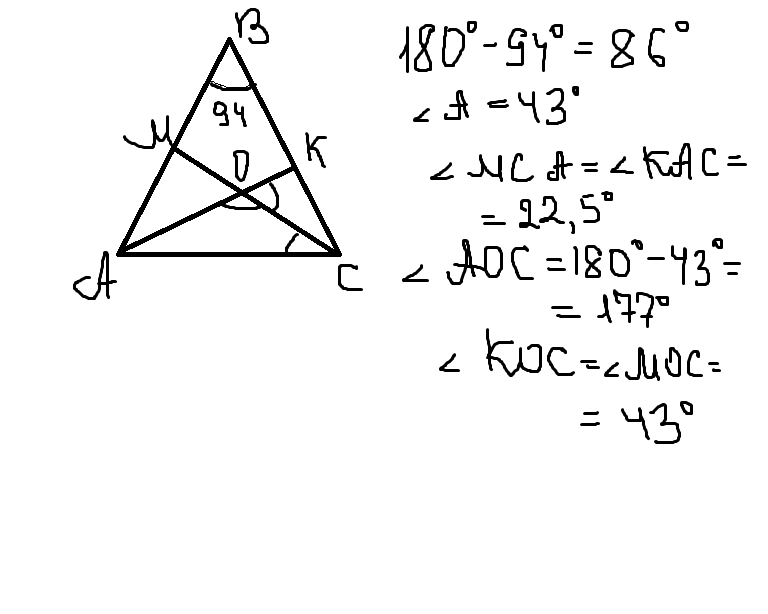 B
94
M
O
K
A
C
180° - 94° = 86°
∠ A = 43°
∠ MCA = ∠ KAC =
= 22,5°
∠ AOC = 180° - 43° =
= 177°
∠ KOC = ∠ MOC =
= 43°